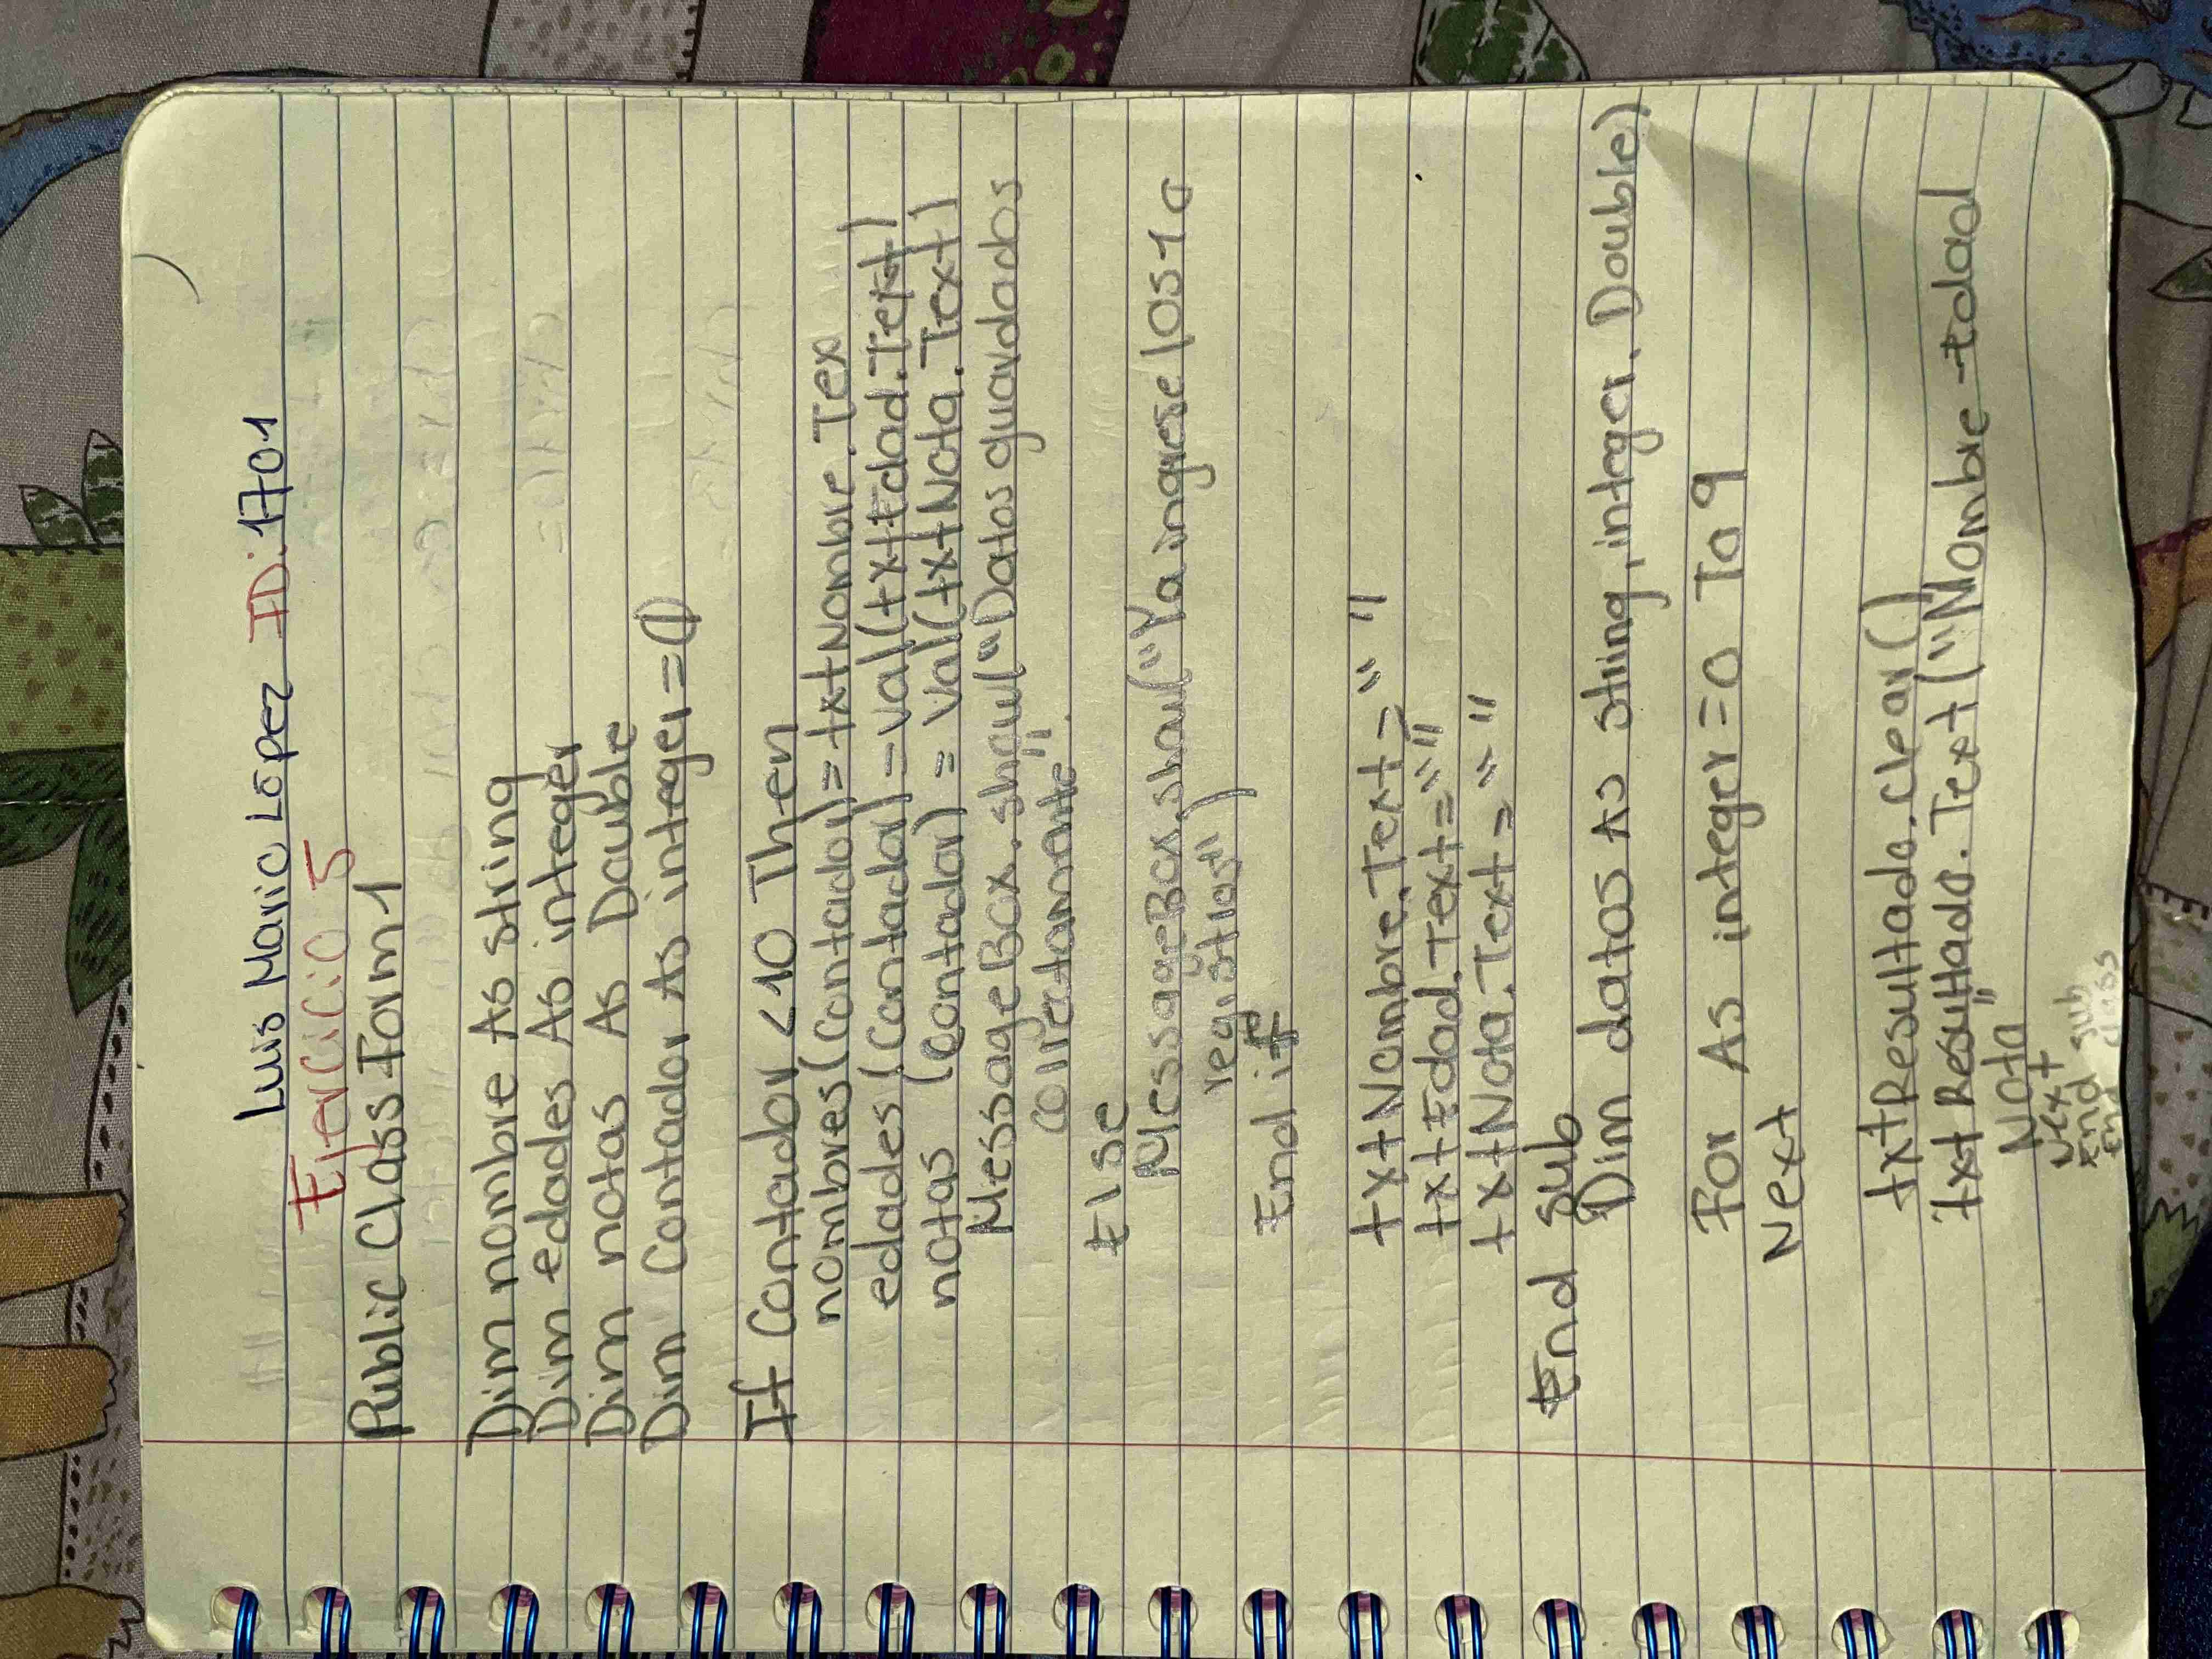 Luis Mario López ID: 1701
Ejercicio 5
Public Class Form1
Dim nombre As string
Dim edades As integer
Dim notas As Double
Dim Contador As integer = 0
If Contador < 10 Then
nombres (contador) = txtNombre.Tex
edades (contador) = val(txtEdad.Text)
notas (contador) = val(txtNota.Text)
MessageBox.show("Datos guardados
correctamente"
Else
MessageBox.show("Ya ingrese los 10
registros")
End if
txtNombre.Text = " "
txtEdad.Text = ""
txtNota.Text = " "
End sub
Dim datos As string, integer. Double)
For As integer = 0 To 9
Next
txtResultado.clear()
txtResultado.Text ("Nombre - edad
Nota"
Next
End sub
End class